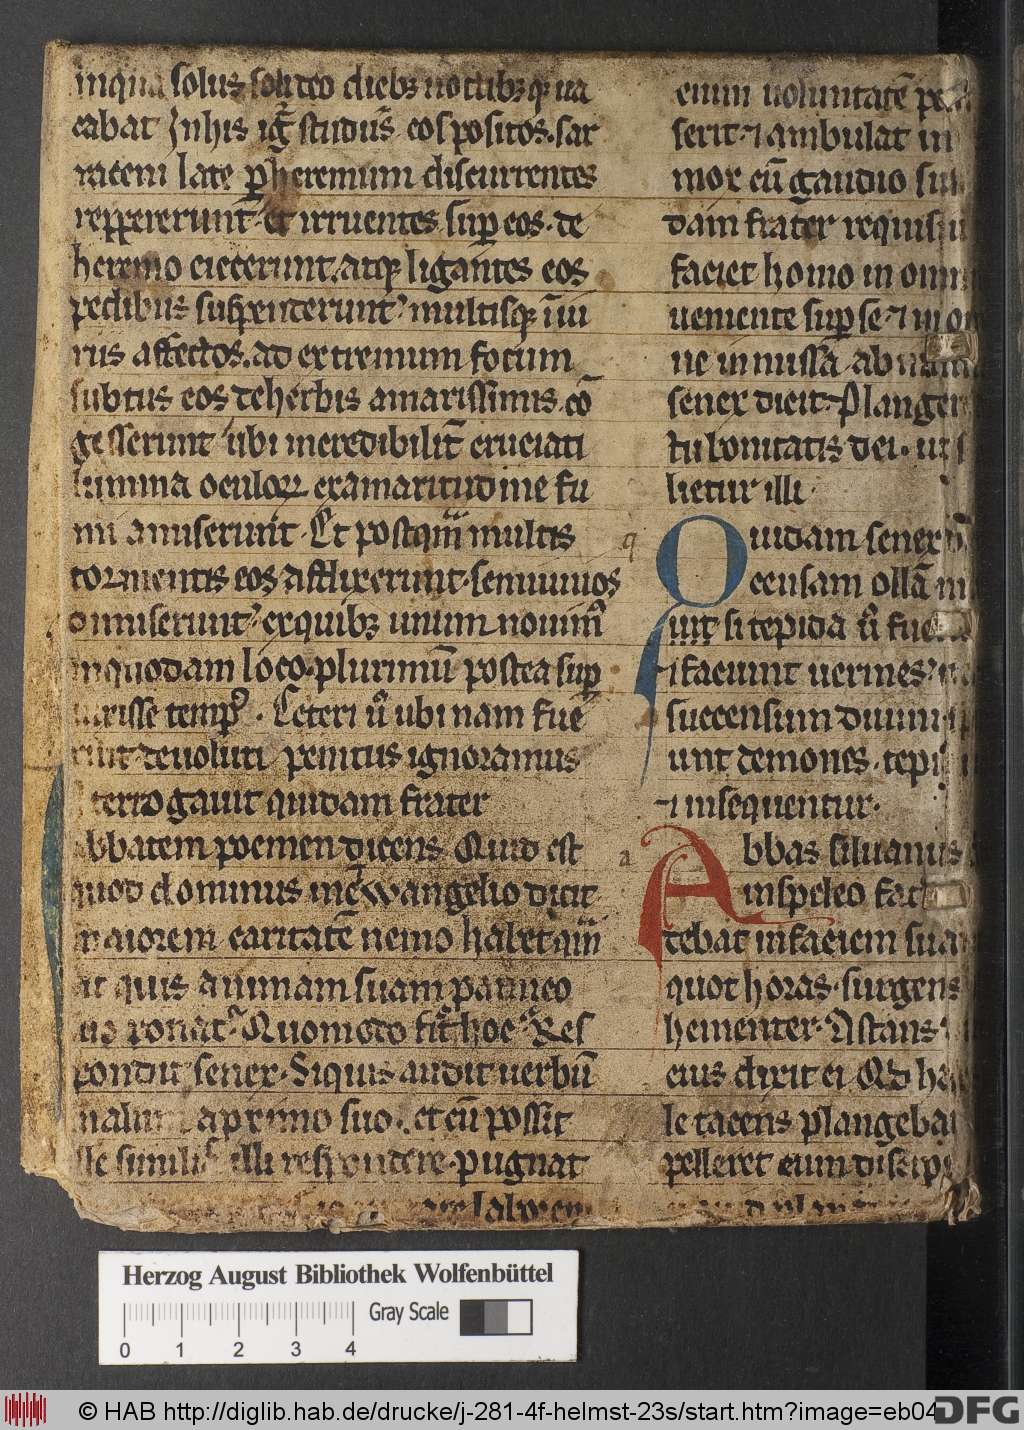 inqua solus soli deo dieb; noctib; q; ua
cabat Inhis igr̄ studiis eos positos. sar
raceni late ꝑ heremum discurrentes
reppererunt. et irruentes suꝑ eos. de
heremo eiecerunt. atq; ligantes eos
pedibus suspenderunt. multisq; iniu
riis affectos. ad extremum focum
subtus eos de herbis amarissimis. cō
gesserunt ubi incredibilit̄ cruciati
lumina oculoꝝ ex amaritudine fu
mi amiserunt. Et postqm̄ multis
tormentis eos afflixerunt. semiuiuos
dimiserunt. ex quib; unum nouim̄
in quodam loco. plurimū postea suꝑ
uixisse temp̄. Ceteri ū ubinam fue
rint deuoluti penitus ignoramus
terrogauit quidam frater
abbatem poemen dicens Quid est
quod dominus in ewangelio dicit
maiorem caritatē nemo habet qm̄
ut quis animam suam pro amico
suo ponat. Quomodo fit hoc. Res
pondit senex. Siquis audit uerbū
malum a proximo suo. et cū possit
ille similis illi respondere. pugnat
laborem
eium uoluntatē
serit. ⁊ ambulat in
mox cū gaudio
dam frater
faciet homo in
ueniente suꝑ se. ⁊
ne inmissa ab
senex dicit. Plangere
tu bonitatis dei. ut
lietur illi.
q Quidam senex
ccensam ollā
unt si tepida ū
faciunt uermes.
succensum diuini.
unt demones. tepi
⁊ insequentur.
a Abbas siluanus
in speleo
tebat in faciem
quot horas. surgens
hementer. Astans
eius dixit ei Qd
le tacens plangebat
pelleret eum
Herzog August Bibliothek Wolfenbüttel
Gray Scale
0 1 2 3 4
© HAB http://diglib.hab.de/drucke/j-281-4f-helmst-23s/start.htm?image=eb04
DFG